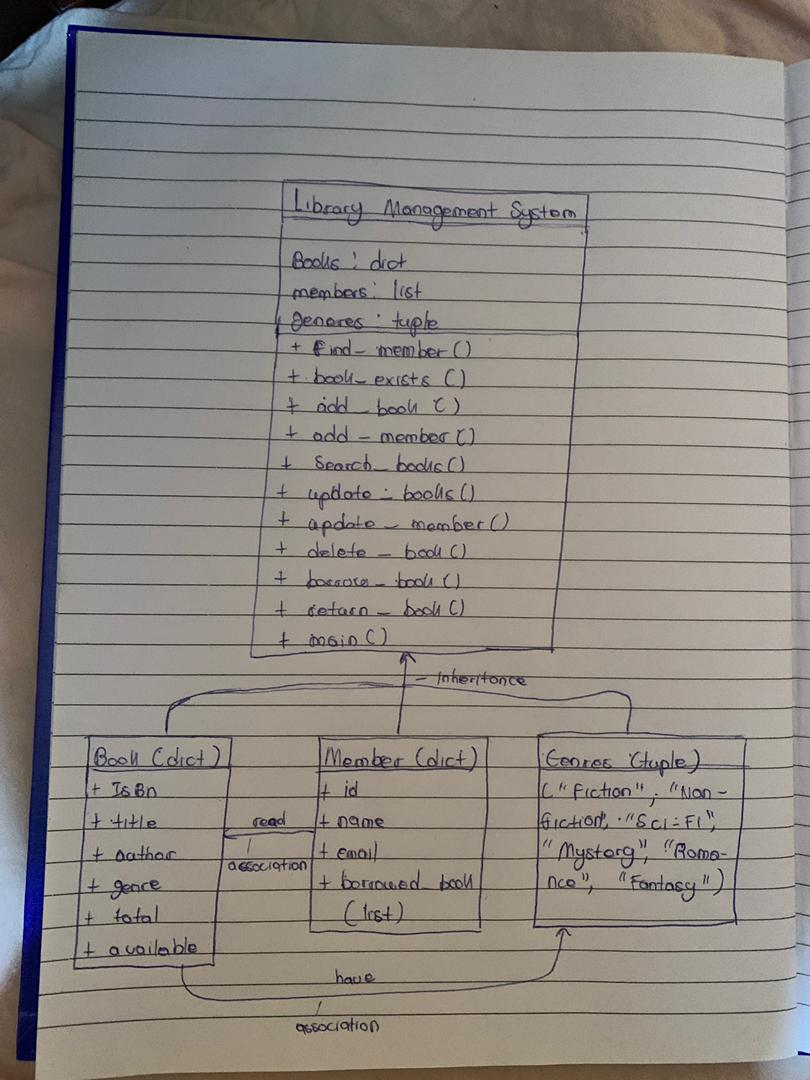 Library Management System
Books : dict
members : list
genares : tuple
+ find_member()
+ book_exists ()
+ add_book ()
+ add_member()
+ Search_books()
+ update_books()
+ apdate_member()
+ delete_book()
+ borrow_book()
+ return_book()
+ main()
- Inheritance
Book (dict)
+ IsBn
+ title
+ author
+ genre
+ total
+ available
read
association
Member (dict)
+ id
+ name
+ email
+ borrowed_book
(list)
Genres (tuple)
("Fiction", "Non-
fiction", "Sci-Fi",
"Mystery", "Roma-
nce", "Fantasy")
have
association